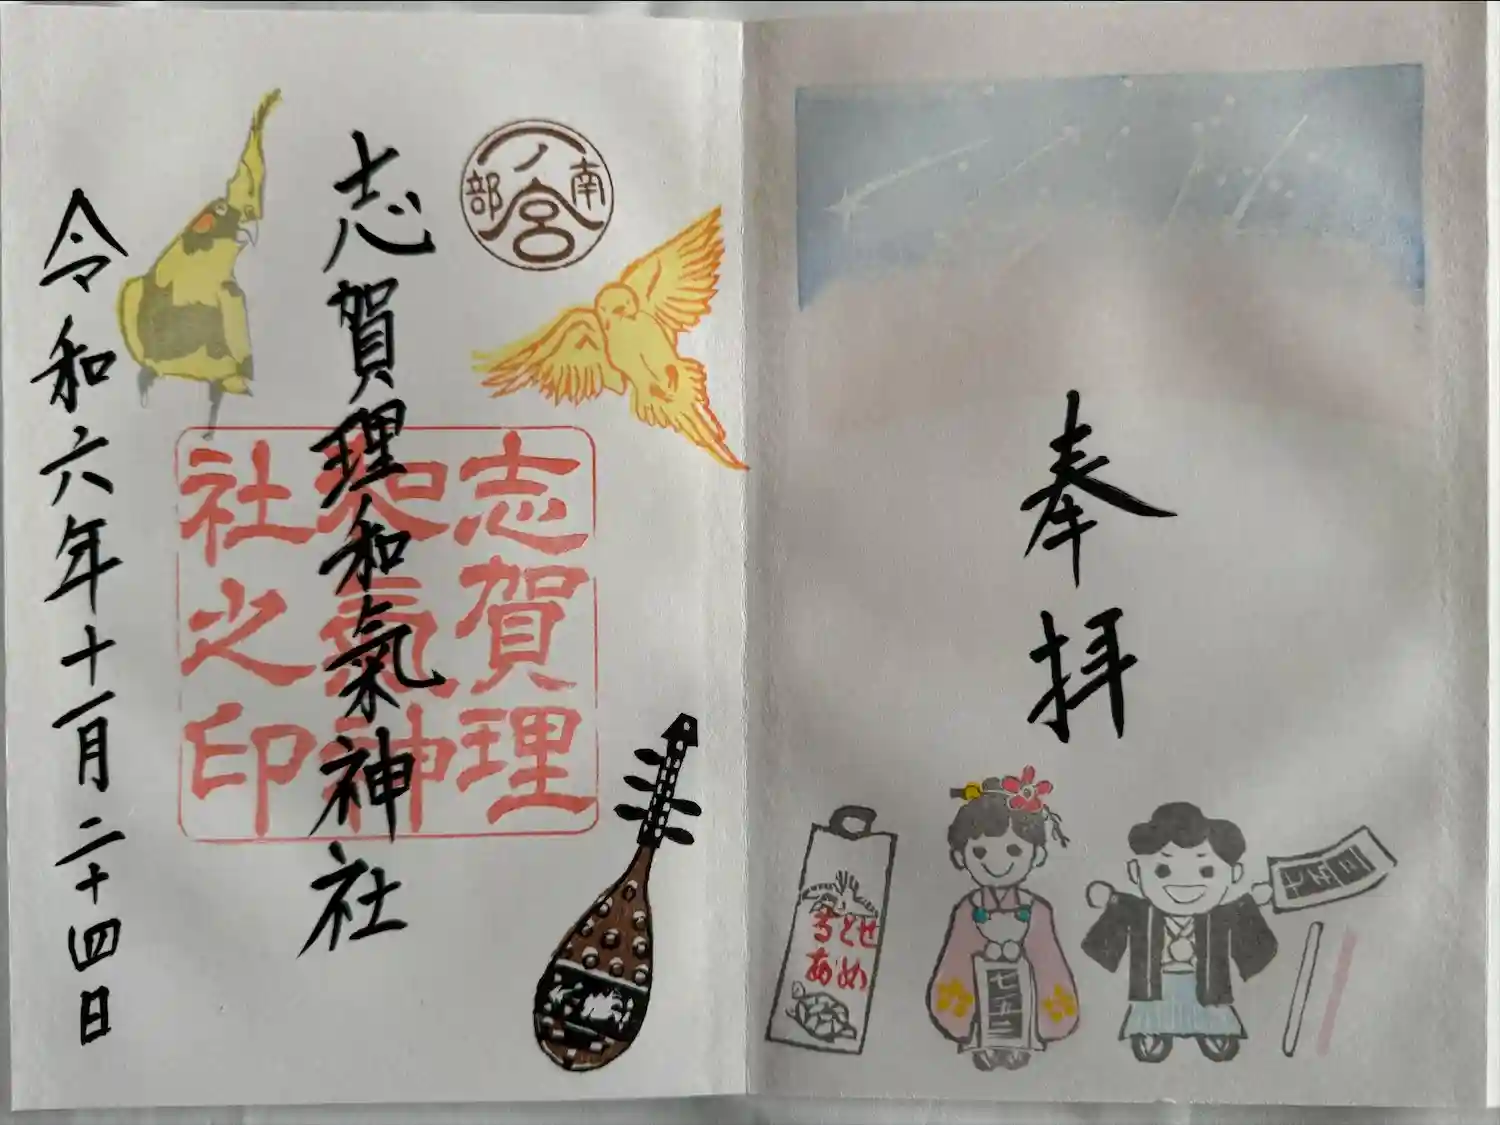 奉拝
七五三
七五三
ちとせ
あめ
南部一ノ宮
志賀理和氣神社
志賀理
和氣神
社之印
令和六年十一月二十四日